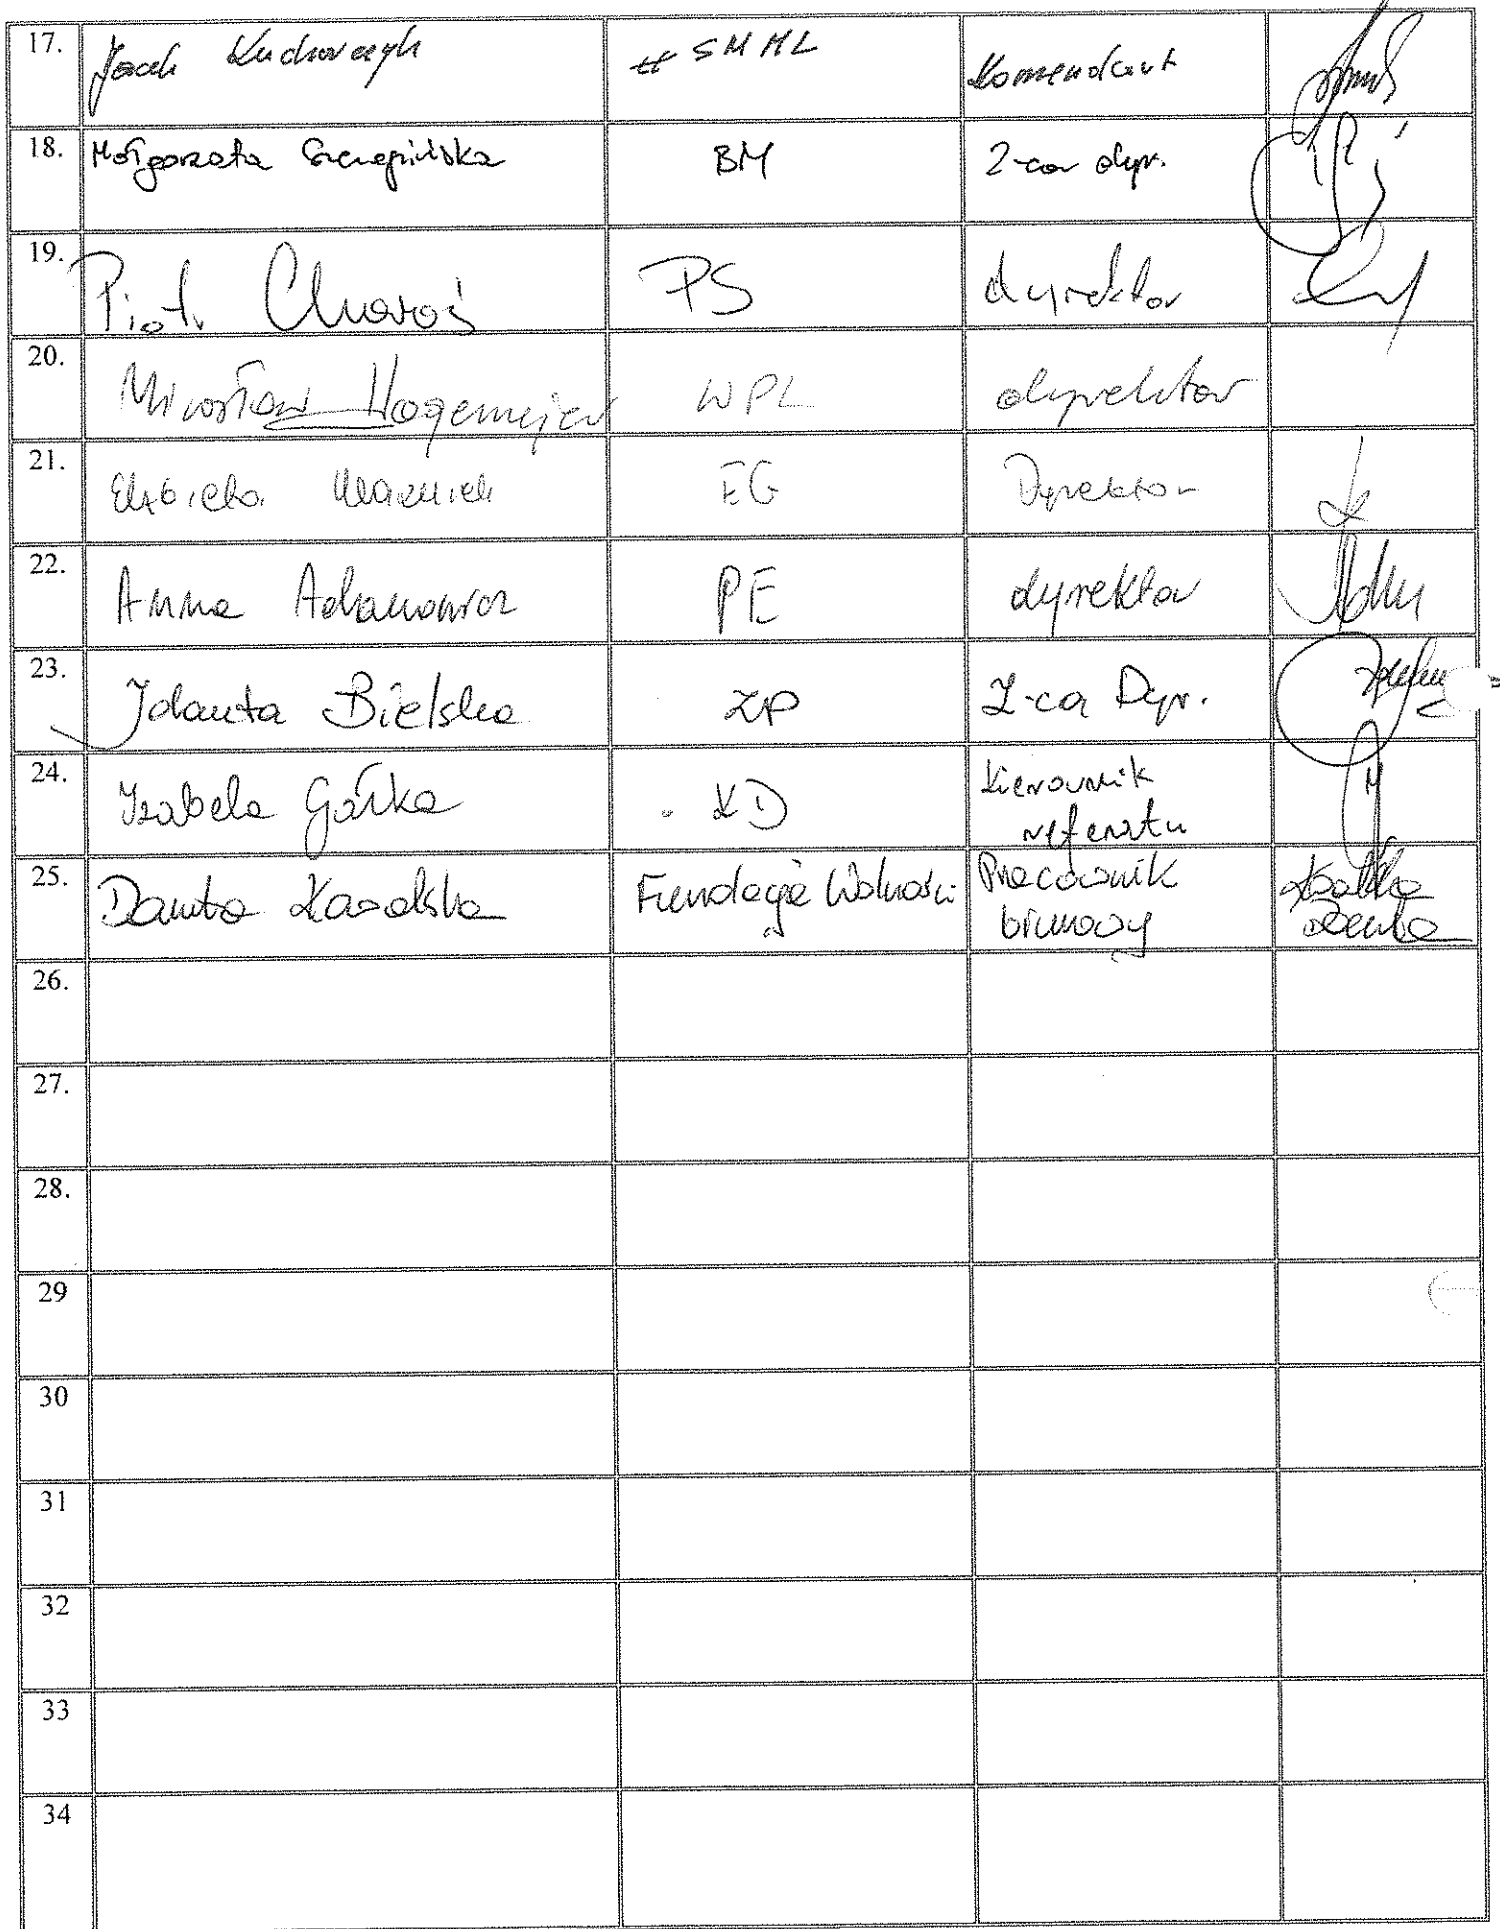 17. Jacek Kucharczyk SM ML Komendant
18. Małgorzata Szczepińska BM Z-ca dyr.
19. Piotr Choroś PS dyrektor
20. Mirosław Hagemejer WPL dyrektor
21. Elżbieta EG Dyrektor
22. Anna Adamowicz PE dyrektor
23. Jolanta Bielska ZP Z-ca Dyr.
24. Izabela Górka KD Kierownik
referatu
25. Danuta Kowalska Fundacja Wolności Pracownik
biurowy
26.
27.
28.
29
30
31
32
33
34